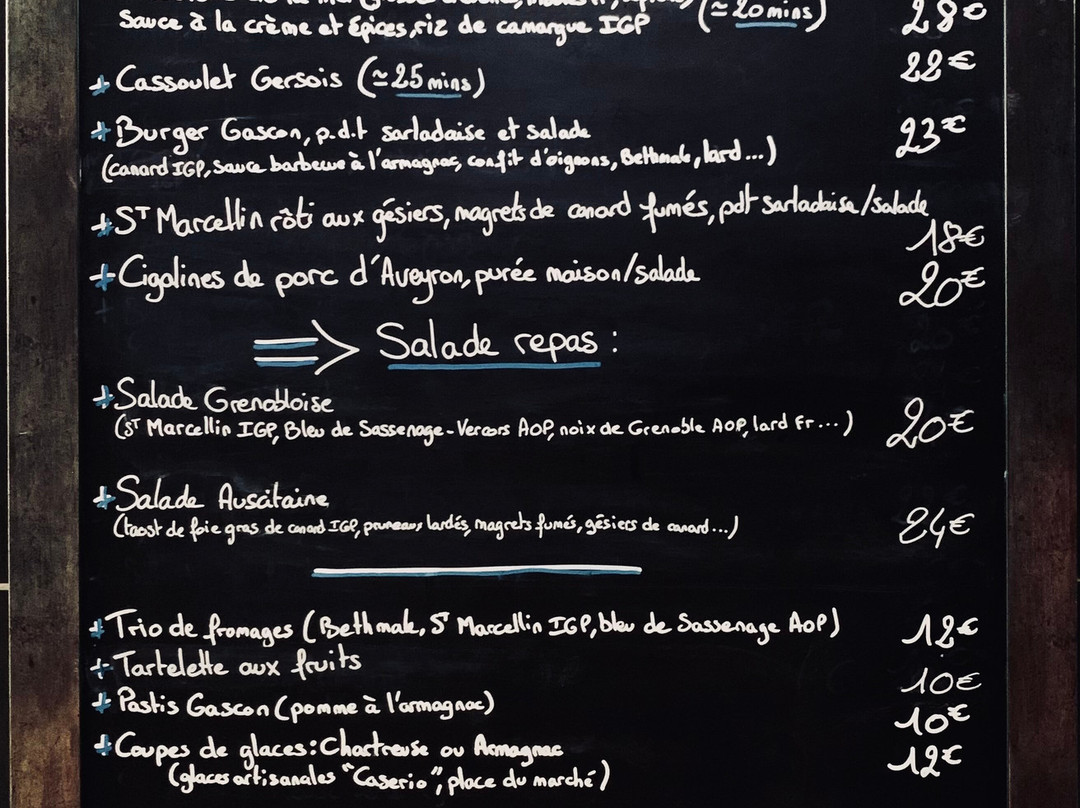 sauce à la crème et épices, riz de camargue IGP (≃20 mins) 28€
+ Cassoulet Gersois (≃25 mins) 22€
+ Burger Gascon, p.d.t sarladaise et salade 23€
(canard IGP, sauce barbecue à l'armagnac, confit d'oignons, Bethmale, lard...)
+ ST Marcellin rôti aux gésiers, magrets de canard fumés, pdt sarladaise/salade
18€
+ Cigalines de porc d'Aveyron, purée maison/salade 20€
=> Salade repas :
+ Salade Grenobloise
(ST Marcellin IGP, Bleu de Sassenage-Vercors AOP, noix de Grenoble AOP, lard Fr...) 20€
+ Salade Auscitaine
(toast de foie gras de canard IGP, pruneaux lardés, magrets fumés, gésiers de canard...) 24€
+ Trio de fromages (Bethmale, ST Marcellin IGP, bleu de Sassenage AOP) 12€
+ Tartelette aux fruits 10€
+ Pastis Gascon (pomme à l'armagnac) 10€
+ Coupes de glaces: Chartreuse ou Armagnac 12€
(glaces artisanales "Caserio", place du marché)